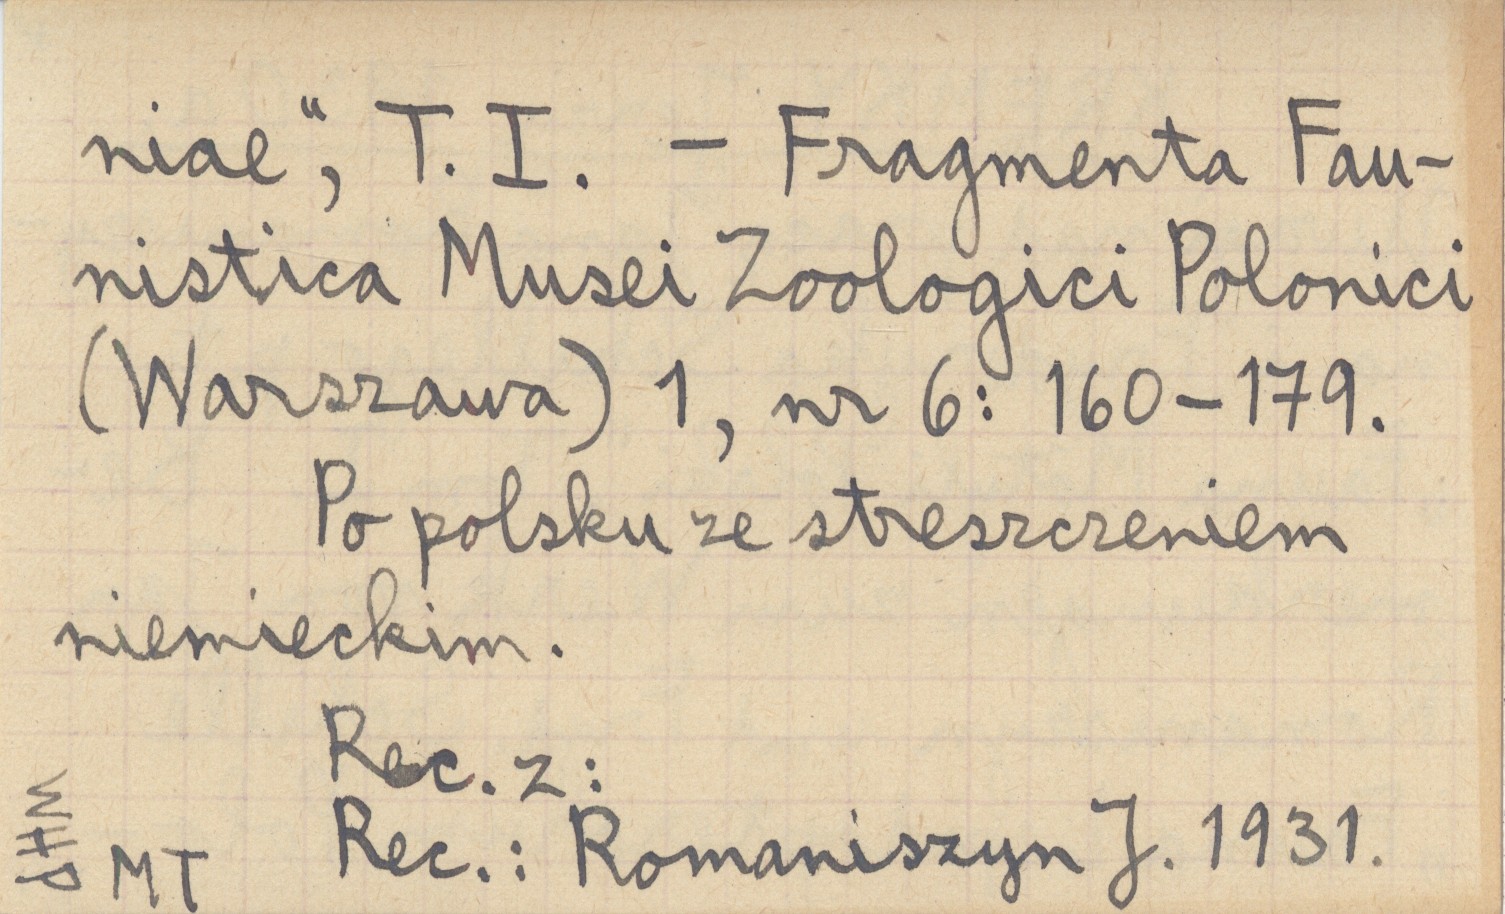 niae“, T. I. – Fragmenta Fau-
nistica Musei Zoologici Polonici
(Warszawa) 1, nr 6: 160–179.
Po polsku ze streszczeniem
niemieckim.
Rec. z:
Rec.: Romaniszyn J. 1931.
MT
WHP